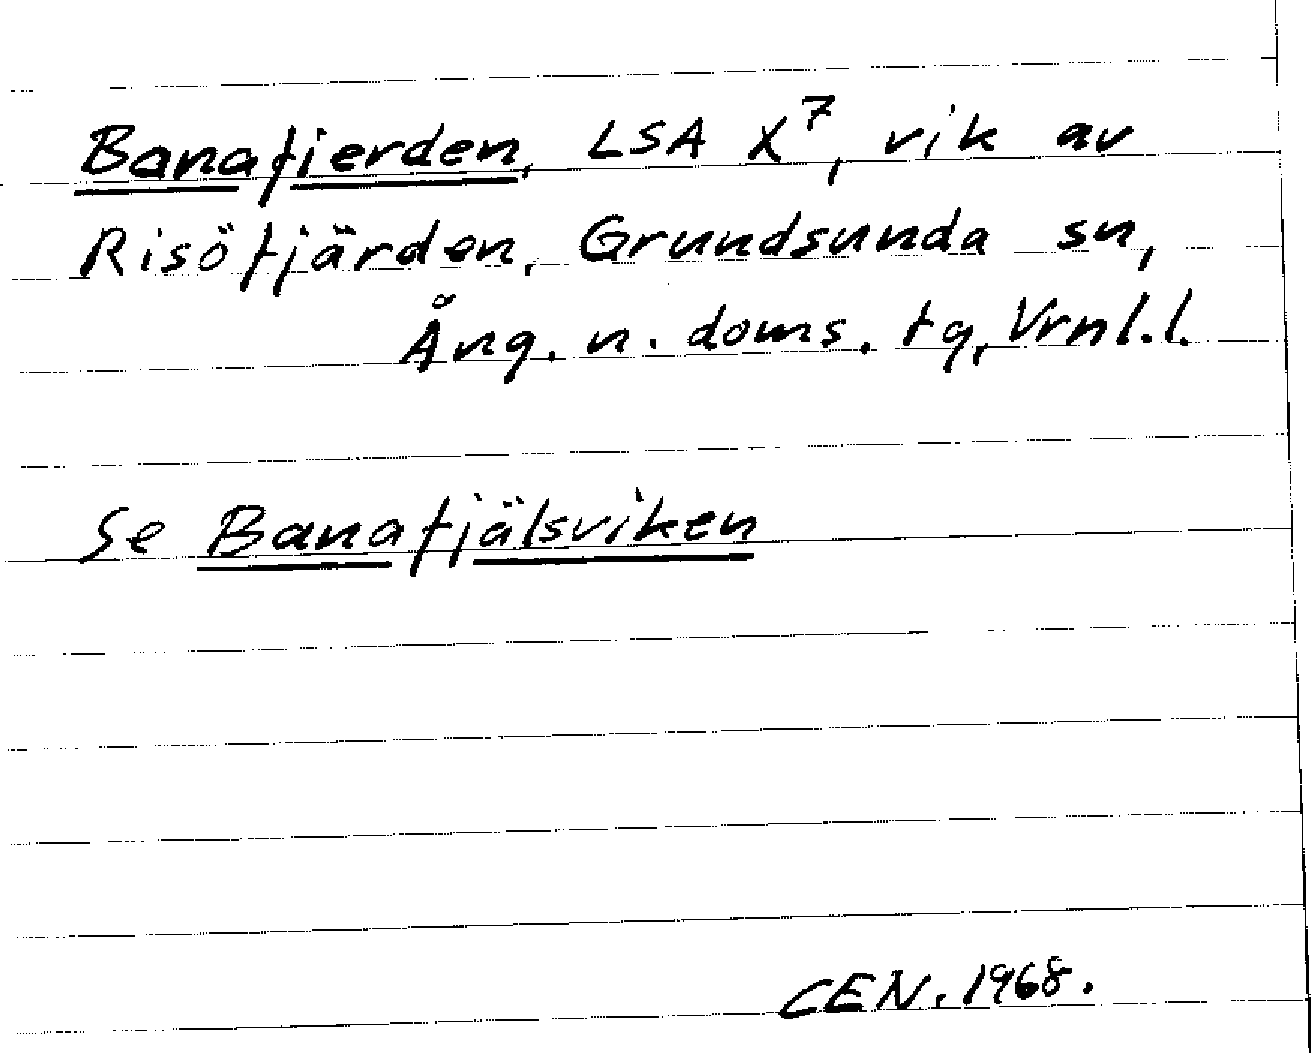 Banafjerden, LSA X⁷, vik av
Risöfjärden, Grundsunda sn,
Ång. n. doms. tg, Vrnl.l.
Se Banafjälsviken
CEN. 1968.